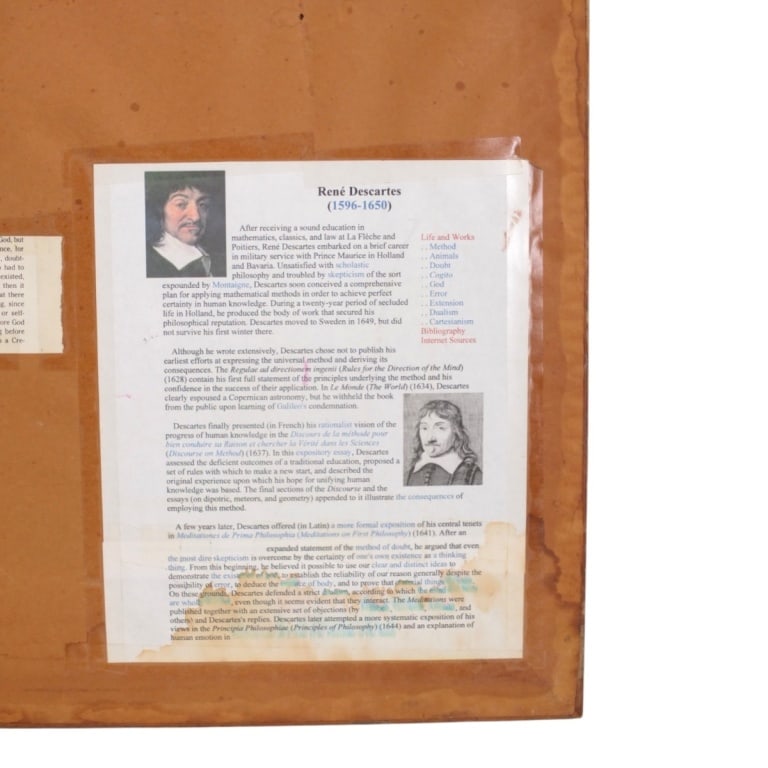 God, but
nce, for
, doubt-
had to
existed,
then it
at there
g, since
or self-
ore God
g before
s a Cre-
René Descartes
(1596-1650)
After receiving a sound education in
mathematics, classics, and law at La Flèche and
Poitiers, René Descartes embarked on a brief career
in military service with Prince Maurice in Holland
and Bavaria. Unsatisfied with scholastic
philosophy and troubled by skepticism of the sort
expounded by Montaigne, Descartes soon conceived a comprehensive
plan for applying mathematical methods in order to achieve perfect
certainty in human knowledge. During a twenty-year period of secluded
life in Holland, he produced the body of work that secured his
philosophical reputation. Descartes moved to Sweden in 1649, but did
not survive his first winter there.
Life and Works
. . Method
. . Animals
. . Doubt
. . Cogito
. . God
. . Error
. . Extension
. . Dualism
. . Cartesianism
Bibliography
Internet Sources
Although he wrote extensively, Descartes chose not to publish his
earliest efforts at expressing the universal method and deriving its
consequences. The Regulae ad directionem ingenii (Rules for the Direction of the Mind)
(1628) contain his first full statement of the principles underlying the method and his
confidence in the success of their application. In Le Monde (The World) (1634), Descartes
clearly espoused a Copernican astronomy, but he withheld the book
from the public upon learning of Galileo's condemnation.
Descartes finally presented (in French) his rationalist vision of the
progress of human knowledge in the Discours de la méthode pour
bien conduire sa Raison et chercher la Vérité dans les Sciences
(Discourse on Method) (1637). In this expository essay, Descartes
assessed the deficient outcomes of a traditional education, proposed a
set of rules with which to make a new start, and described the
original experience upon which his hope for unifying human
knowledge was based. The final sections of the Discourse and the
essays (on dipotric, meteors, and geometry) appended to it illustrate the consequences of
employing this method.
A few years later, Descartes offered (in Latin) a more formal exposition of his central tenets
in Meditationes de Prima Philosophia (Meditations on First Philosophy) (1641). After an
expanded statement of the method of doubt, he argued that even
the most dire skepticism is overcome by the certainty of one's own existence as a thinking
thing. From this beginning, he believed it possible to use our clear and distinct ideas to
demonstrate the to establish the reliability of our reason generally despite the
possibility of error, to deduce the of body, and to prove that
On these grounds, Descartes defended a strict dualism, according to which the
are , even though it seems evident that they interact. The Meditations were
published together with an extensive set of objections (by and
others) and Descartes's replies. Descartes later attempted a more systematic exposition of his
views in the Principia Philosophiae (Principles of Philosophy) (1644) and an explanation of
human emotion in